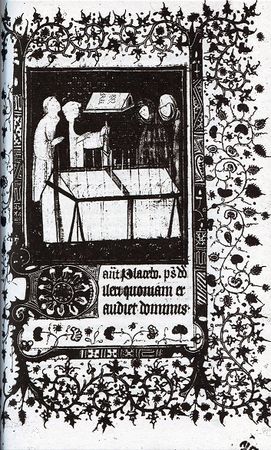 Placebo. ps
Dilexi quoniam et
audiet dominus.